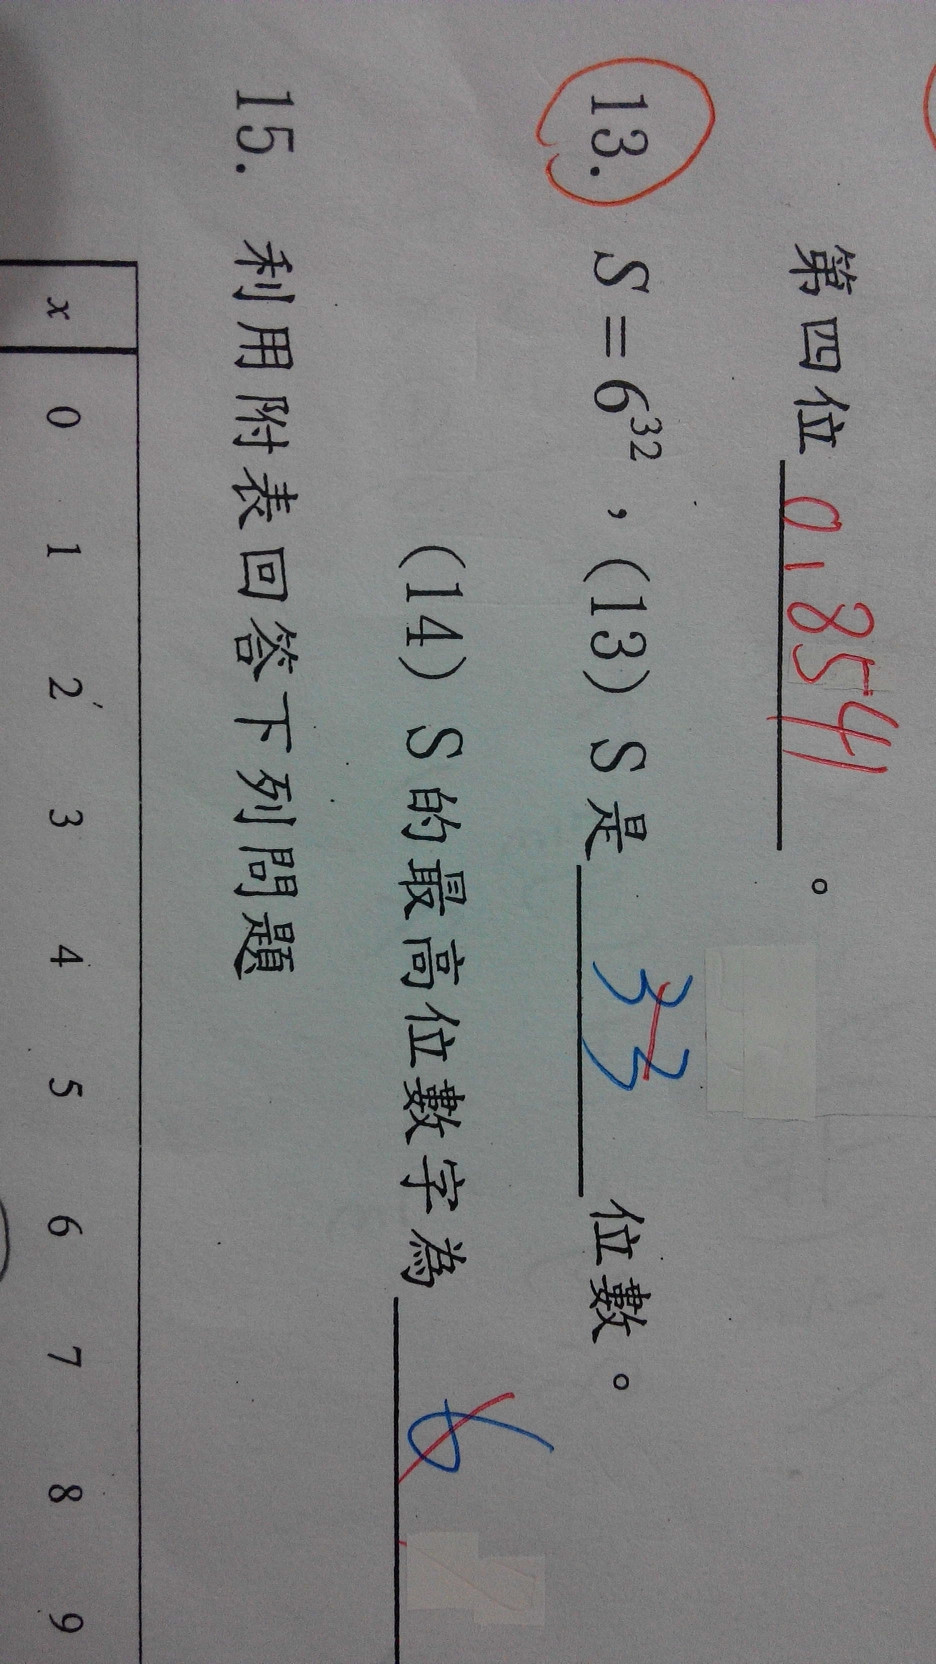 第四位 0.8541 。
13. S=6³² , (13) S是 33 位數。
(14) S的最高位數字為 6
15. 利用附表回答下列問題
x 0 1 2 3 4 5 6 7 8 9